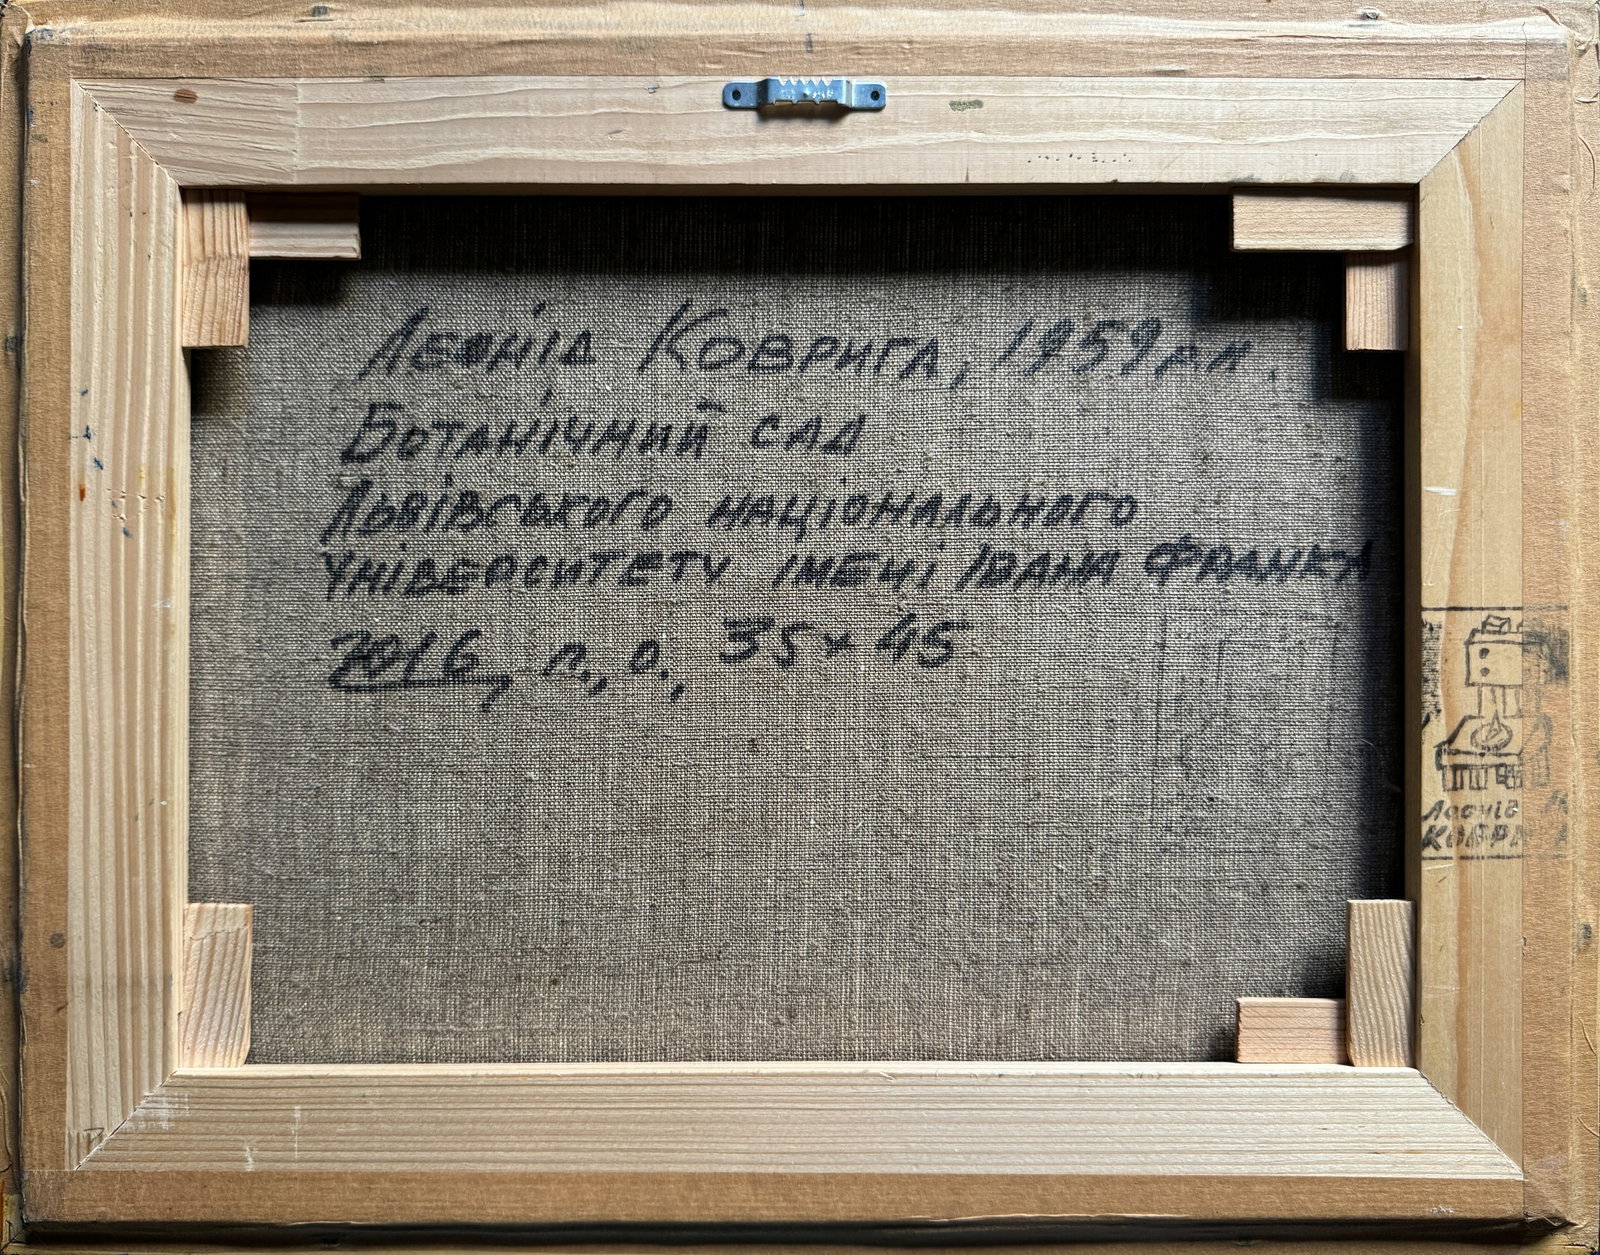 Леонід Коврига, 1959 р.н.
Ботанічний сад
Львівського національного
Університету імені Івана Франка
2016, п., о., 35х45
Леонід